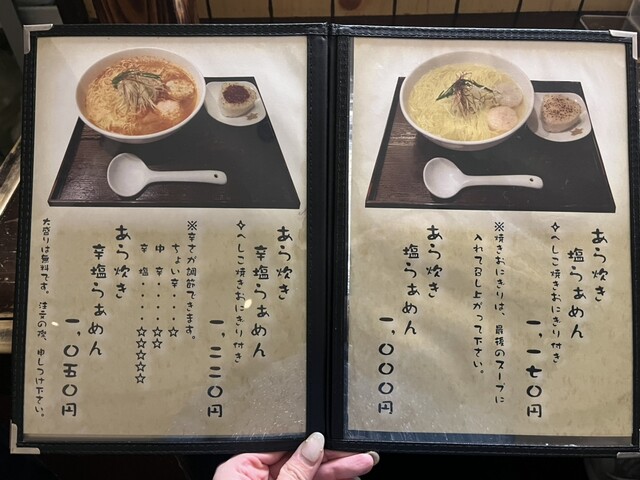 あら炊き
塩らぁめん
✧へしこ焼きおにぎり付き
一、一七〇円
※焼きおにぎりは、最後のスープに
入れて召し上がって下さい。
あら炊き
塩らぁめん
一、〇〇〇円
あら炊き
辛塩らぁめん
✧へしこ焼きおにぎり付き
一、二二〇円
※辛さが調節できます。
ちょい辛・・・・☆
ゆ辛・・・・☆☆
辛塩・・・・☆☆☆☆☆
あら炊き
辛塩らぁめん
一、〇五〇円
大盛りは無料です。注文の際、申しつけ下さい。